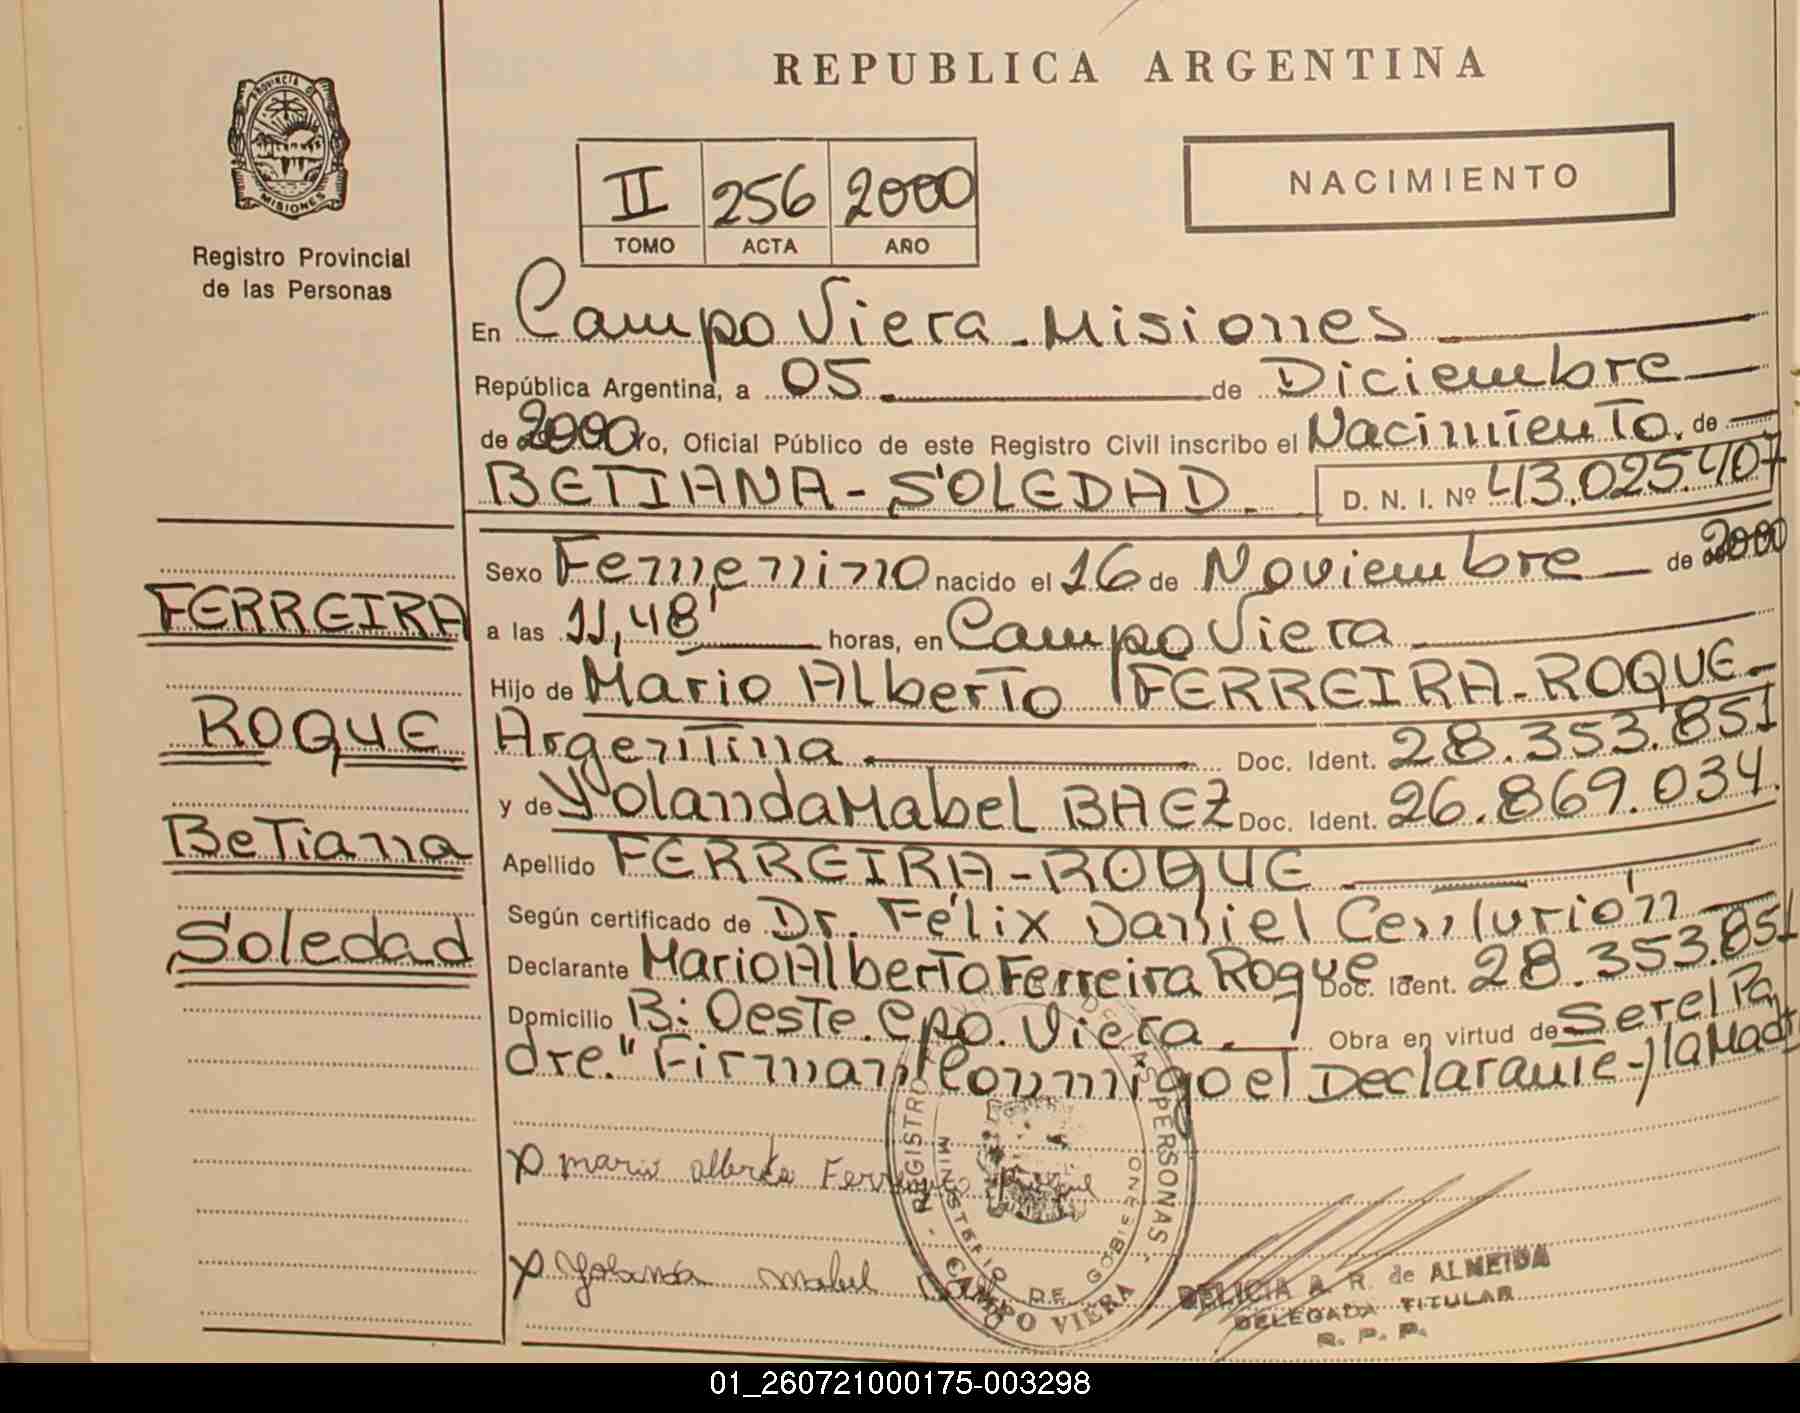 REPUBLICA ARGENTINA
PROVINCIA D MISIONES
Registro Provincial
de las Personas
II 256 2000
TOMO ACTA AÑO
NACIMIENTO
En Campo Viera - Misiones
República Argentina, a 05 de Diciembre
de 2000 Yo, Oficial Público de este Registro Civil inscribo el Nacimiento. de
BETIANA - SOLEDAD. D. N. I. Nº 43.025.407
Sexo Femenino nacido el 16 de Noviembre de 2000
a las 11,48' horas, en Campo Viera
Hijo de Mario Alberto FERREIRA - ROQUE -
Argentina Doc. Ident. 28.353.851
y de Yolanda Mabel BAEZ Doc. Ident. 26.869.034.
Apellido FERREIRA - ROQUE
Según certificado de Dr. Félix Daniel Centurión
Declarante Mario Alberto Ferreira Roque - Doc. Ident. 28.353.851
Domicilio B: Oeste. Cpo. Viera. Obra en virtud de Ser el Pa
dre." Firman Conmigo el Declarante - y la Madr
FERREIRA
ROQUE
Betiana
Soledad
x mario alberto Ferreira Roque
x Yolanda mabel
REGISTRO DE LAS PERSONAS
MINISTERIO DE GOBIERNO
CAMPO VIERA
DELICIA A. R. de ALMEIDA
DELEGADA TITULAR
R. P. P.
01_260721000175-003298